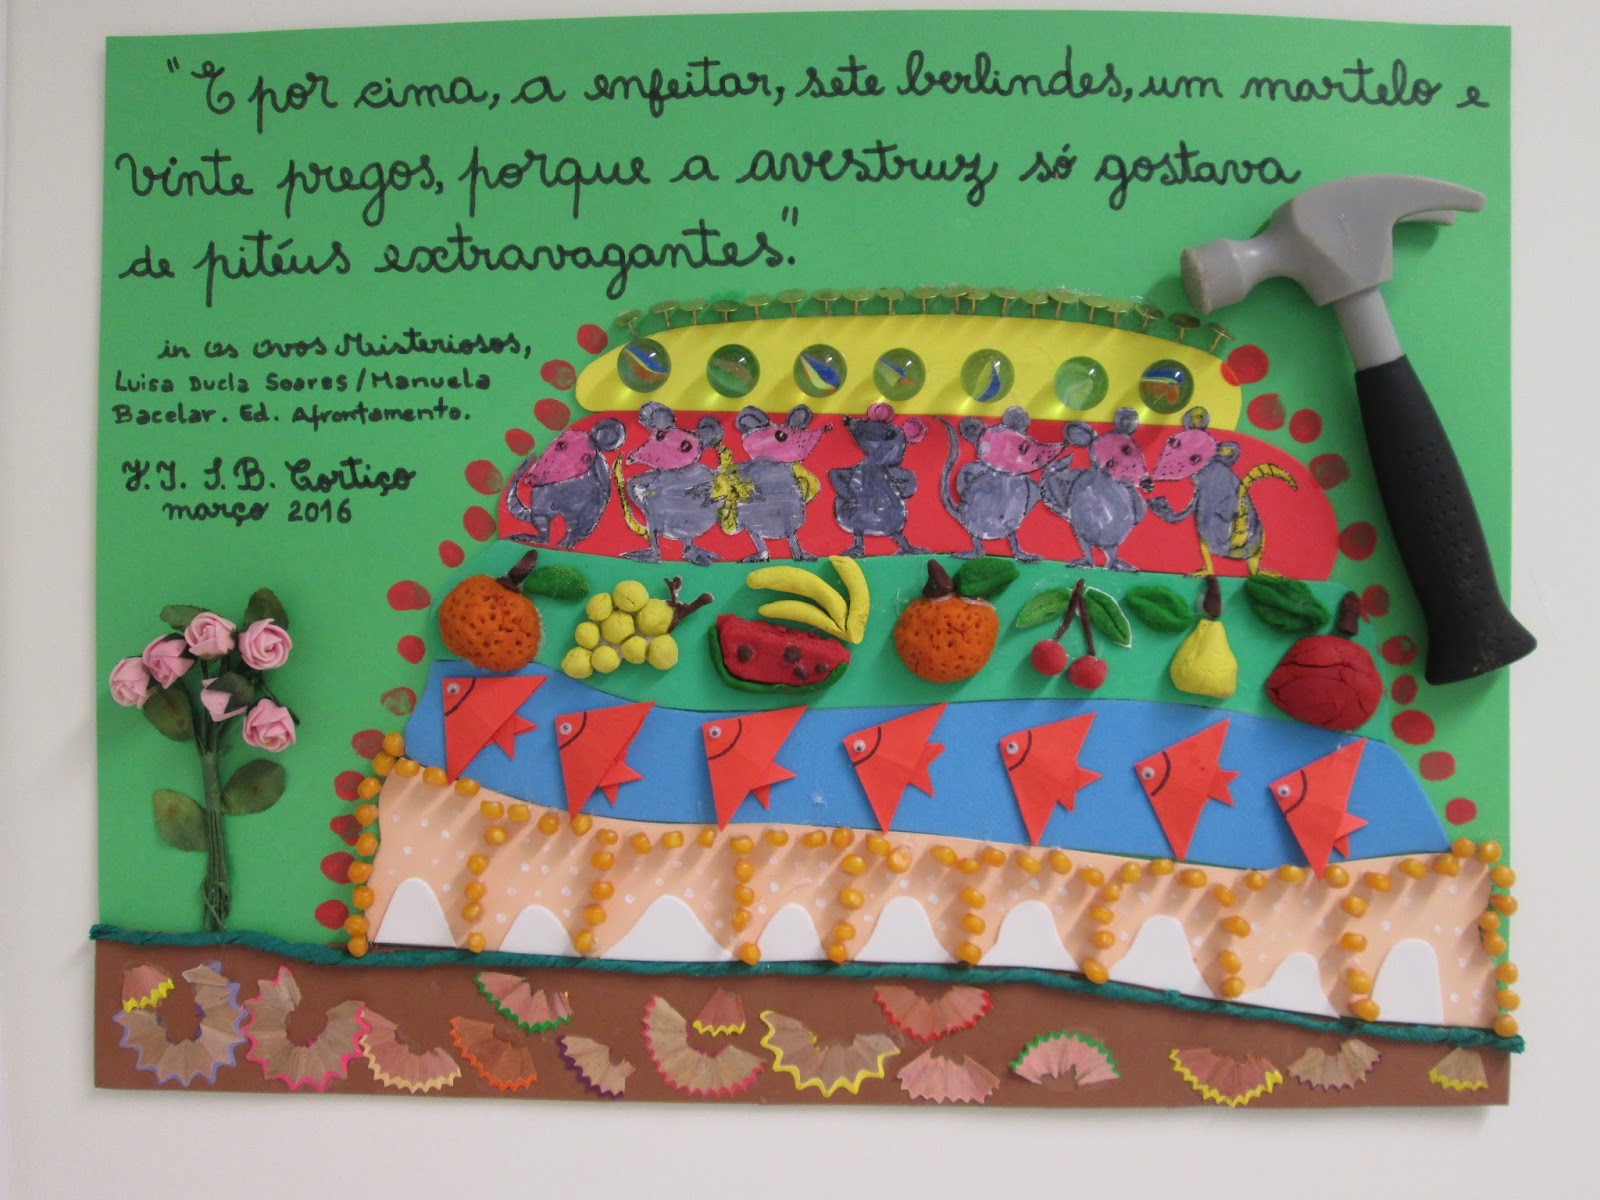 "E por cima, a enfeitar, sete berlindes, um martelo e
vinte pregos, porque a avestruz só gostava
de pitéus extravagantes."
in Os Ovos Misteriosos,
Luisa Ducla Soares/Manuela
Bacelar. Ed. Afrontamento.
J.I. S.B. Cortiço
março 2016